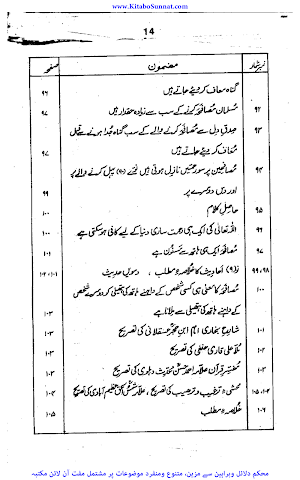 www.KitaboSunnat.com
14
صفحہ مضمون نمبرشمار
۹۶ گناہ معاف کر دیئے جاتے ہیں
۹۷ مسلمان مصافحہ کرنے کے سب سے زیادہ حقدار ہیں ۹۲
صدق دل سے مصافحہ کرنے والے کے سب گناہ جدا ہونے سے قبل ۹۳
۹۷ معاف کر دیئے جاتے ہیں
مصافحین پر سو رحمتیں نازل ہوتی ہیں نوے (۹۰) پہل کرنے والے پر ۹۴
۹۹ اور دس دوسرے پر
۱۰۰ حاصل کلام ۹۵
۱۰۰ اللہ تعالیٰ کی ایک ہی رحمت ساری دنیا کے لیے کافی ہو سکتی ہے ۹۶
۱۰۱ مصافحہ ایک ہی ہاتھ سے مسنون ہے ۹۷
۱۰۱، ۱۰۲ نو (۹) احادیث کا خلاصہ و مطلب، دسویں حدیث ۹۸، ۹۹
مصافحہ کا معنی ہی کسی شخص کے داہنے ہاتھ کی ہتھیلی کو دوسرے شخص ۱۰۰
۱۰۳ کے داہنے ہاتھ کی ہتھیلی سے ملانا ہے
۱۰۳ شارح بخاری امام ابن حجر عسقلانی کی تصریح ۱۰۱
۱۰۳ ملا علی قاری حنفی کی تصریح ۱۰۲
۱۰۳ مفسر قرآن علامہ احمد حسن محدث دہلوی کی تصریح ۱۰۳
۱۰۴ محشی ترغیب و ترہیب کی تصریح، علامہ شمس الحق عظیم آبادی کی تصریح ۱۰۴، ۱۰۵
۱۰۵ خلاصہ و مطلب ۱۰۶
محکم دلائل وبراہین سے مزین، متنوع ومنفرد موضوعات پر مشتمل مفت آن لائن مکتبہ